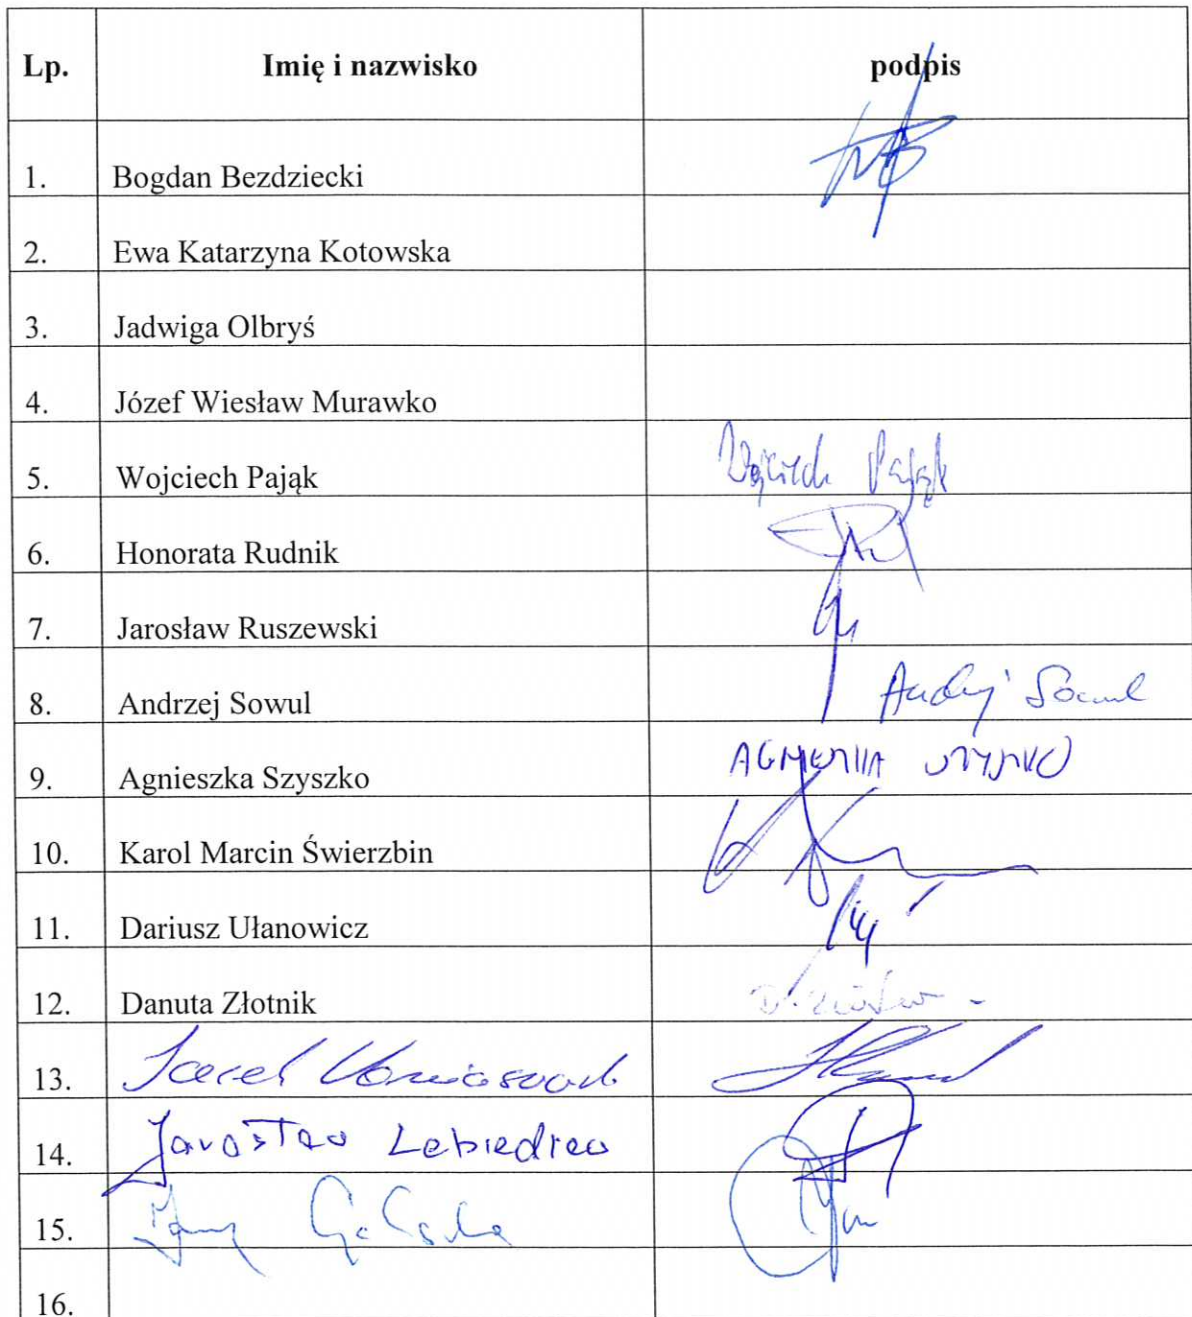 Lp. Imię i nazwisko podpis
1. Bogdan Bezdziecki
2. Ewa Katarzyna Kotowska
3. Jadwiga Olbryś
4. Józef Wiesław Murawko
5. Wojciech Pająk Wojciech Pająk
6. Honorata Rudnik
7. Jarosław Ruszewski
8. Andrzej Sowul Andrzej Sowul
9. Agnieszka Szyszko
10. Karol Marcin Świerzbin
11. Dariusz Ułanowicz
12. Danuta Złotnik
13. Jacek
14. Jarosław Lebiedzew
15.
16.